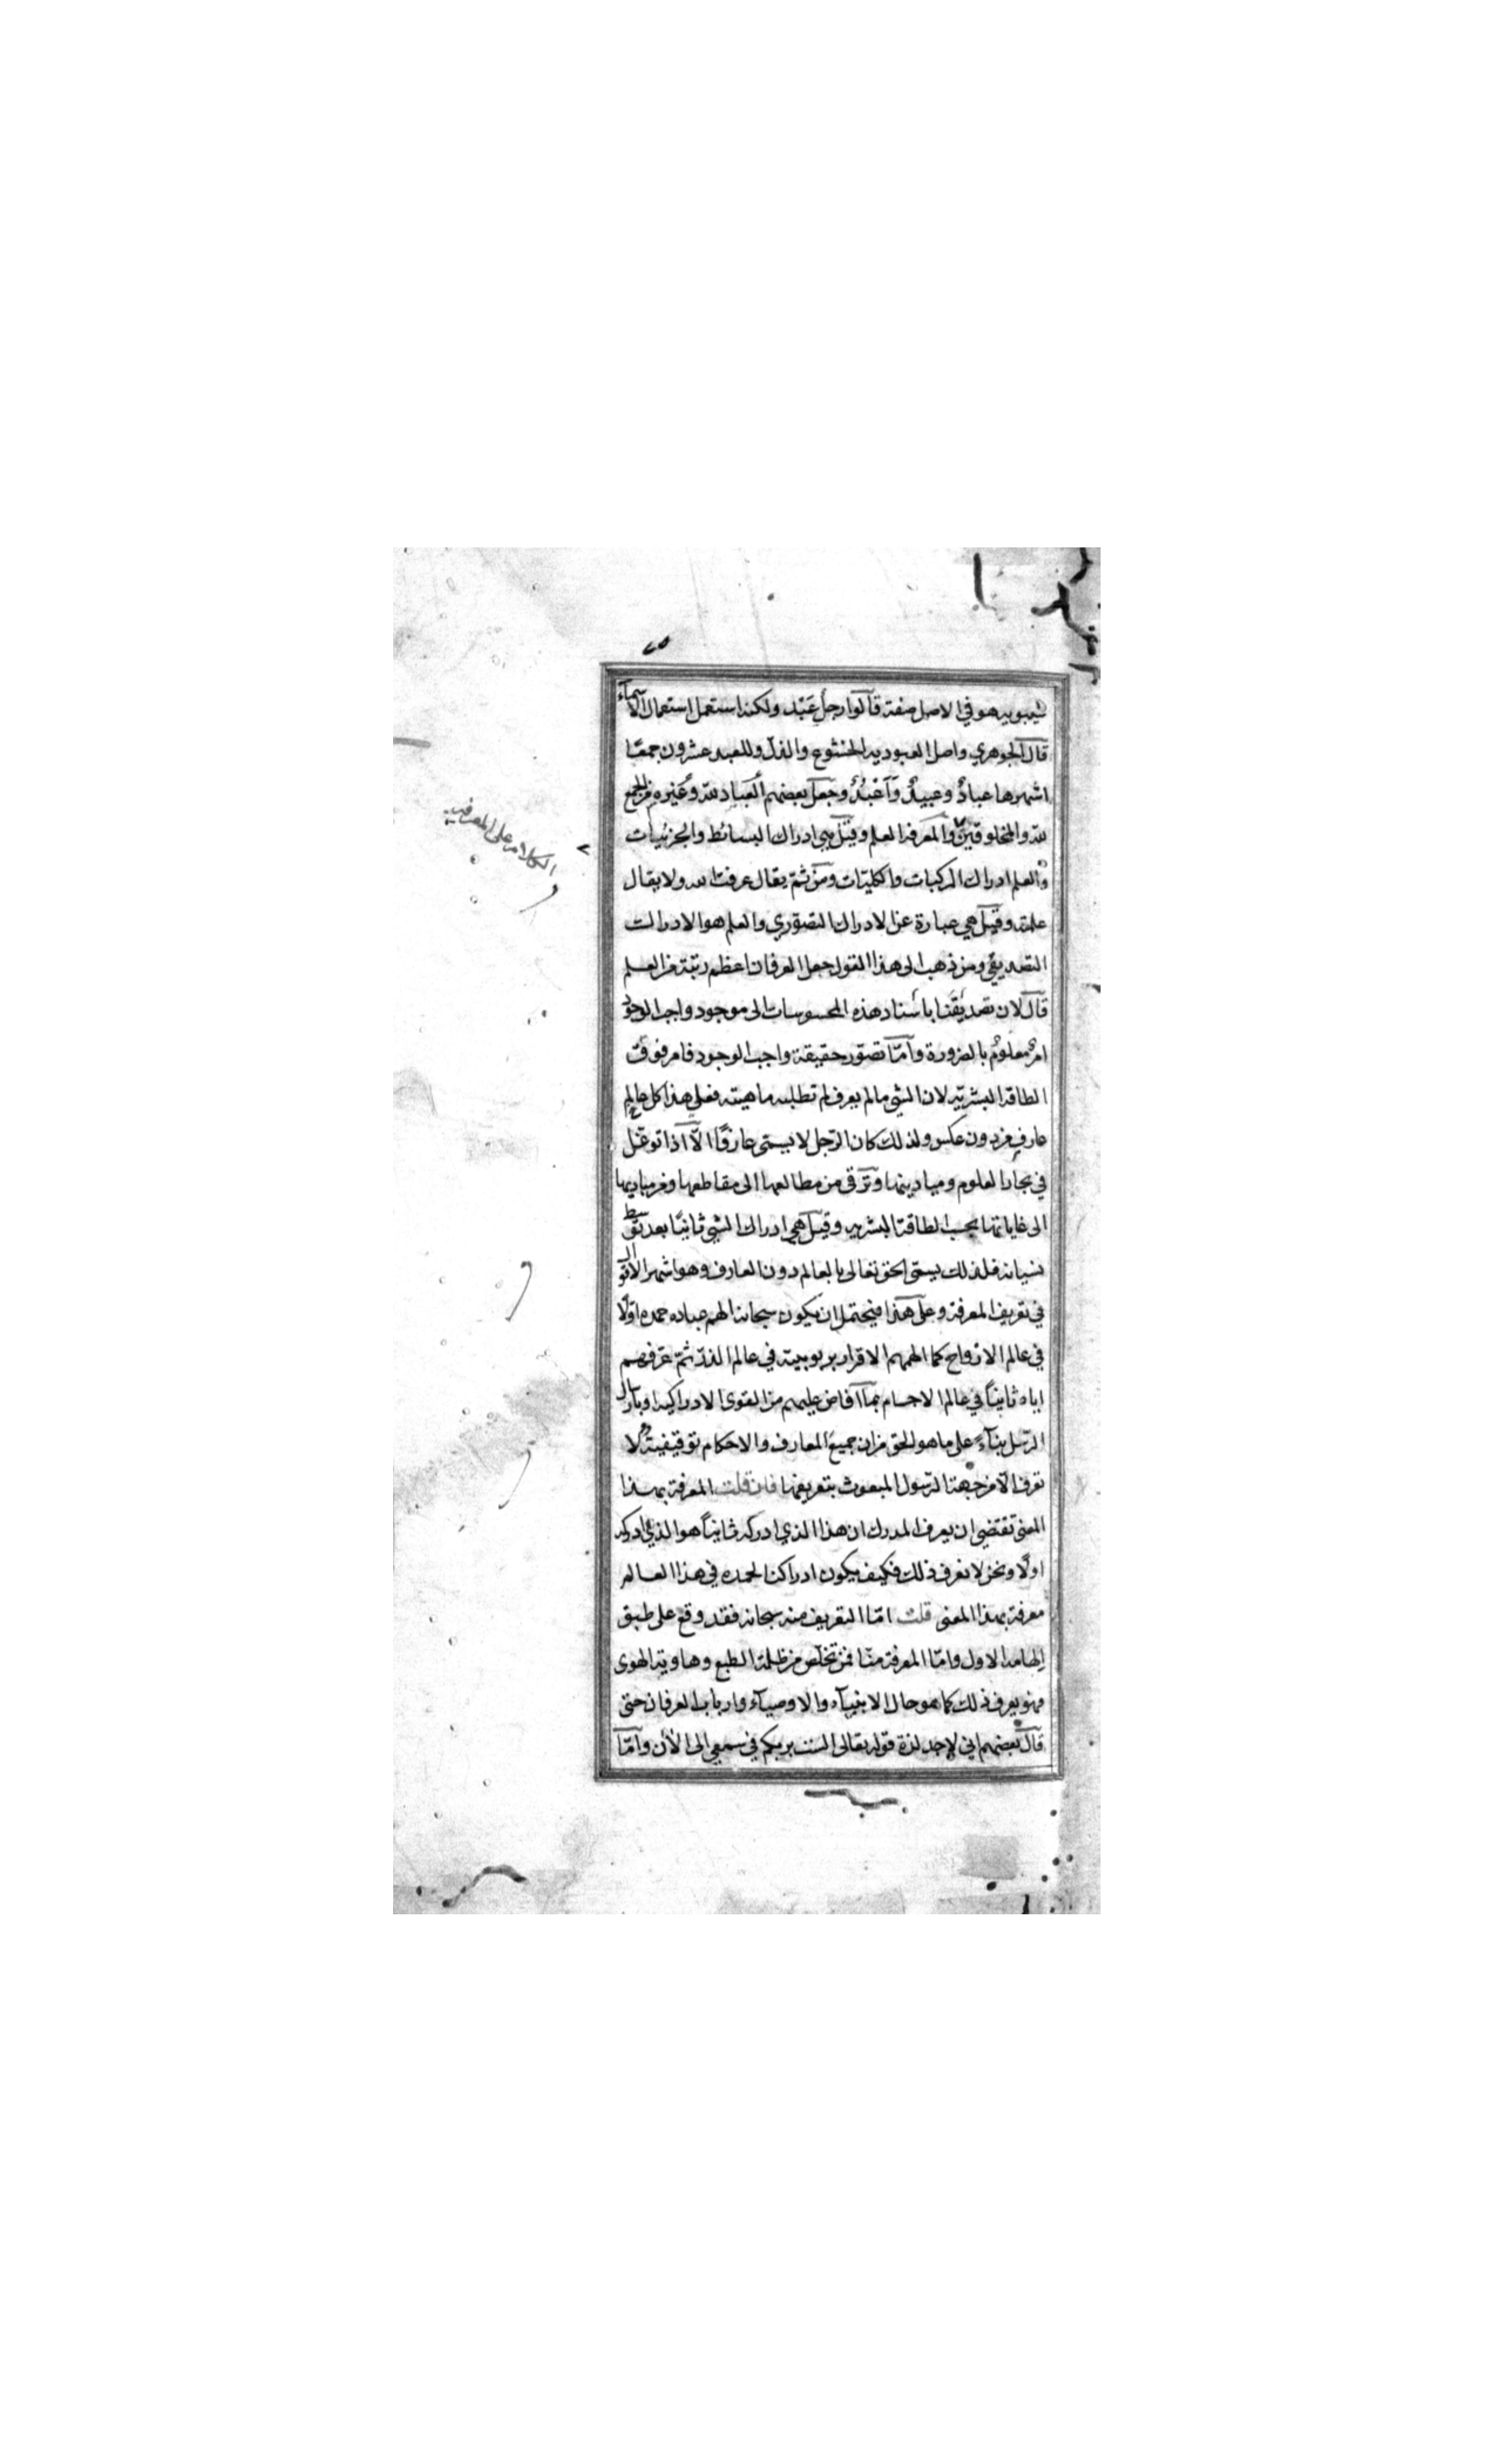 سيبويه هو في الاصل صفة قالوا رجل عَبْد ولكنه استعمل استعمال الاسمآء
قال الجوهري واصل العبودية الخشوع والذل وللعبد عشرون جمعًا
اشهرها عبادٌ وعبيدٌ وَاَعْبُدٌ وجعل بعضهم العباد لله وغيره من الجمع
لله والمخلوقين والمعرفة العلم وقيل هي ادراك البسائط والجزئيات
والعلم ادراك المركبات والكليّات ومن ثمّ يقال عرفت الله ولا يقال
علمته وقيل هي عبارة عن الادراك التصوّري والعلم هو الادراك
التصديقي ومن ذهب الى هذا القول جعل العرفان اعظم رتبة من العلم
قال لان تصديقَنا باسناد هذه المحسوسات الى موجود واجب الوجود
امرٌ معلومٌ بالضرورة وامّا تصوّر حقيقة واجب الوجود فامر فوق
الطاقة البشريّه لان الشي ما لم يعرف لم تطلب ماهيته فعلى هذا كل عالم
عارف من دون عكس ولذلك كان الرّجل لا يسمّى عارفًا الّا اذا توغّل
في بحار العلوم وميادينها وترقى من مطالعها الى مقاطعها ومن مباديها
الى غاياتها بحسب الطاقة البشريه وقيل هي ادراك الشي ثانيًا بعد توسط
نسيانه فلذلك يسمّى الحق تعالى بالعالم دون العارف وهو اشهر الاقوال
في تعريف المعرفة وعلى هذا فيحتمل ان يكون سبحانه الهم عباده حمده اوّلًا
في عالم الارواح كما الهمهم الاقرار بربوبيته في عالم الذرّ ثمّ عرّفهم
اياه ثانيًا في عالم الاجسام بمآ افاض عليهم من القوى الادراكيه او بارسال
الرّسل بنآءً على ما هو الحق من ان جميع المعارف والاحكام توقيفيةٌ لا
تعرف الّا من جهة الرّسول المبعوث بتعريفها فان قلت المعرفة بهذا
المعنى تقتضي ان يعرف المدرك ان هذا الذي ادركه ثانيًا هو الذي ادركه
اولًا ونحن لا نعرف ذلك فكيف يكون ادراكنا لحمده في هذا العالم
معرفة بهذا المعنى قلت امّا التعريف منه سبحانه فقد وقع على طبق
الهامه الاول وامّا المعرفة منّا فمن تخلّص من ظلمة الطبع وهاوية الهوى
فهو يعرف ذلك كما هو حال الانبيآء والاوصيآء وارباب العرفان حتى
قال بعضهم اني لاجد لذة قوله تعالى الست بربكم في سمعي الى الان وامّا
الكلام على المعرفه